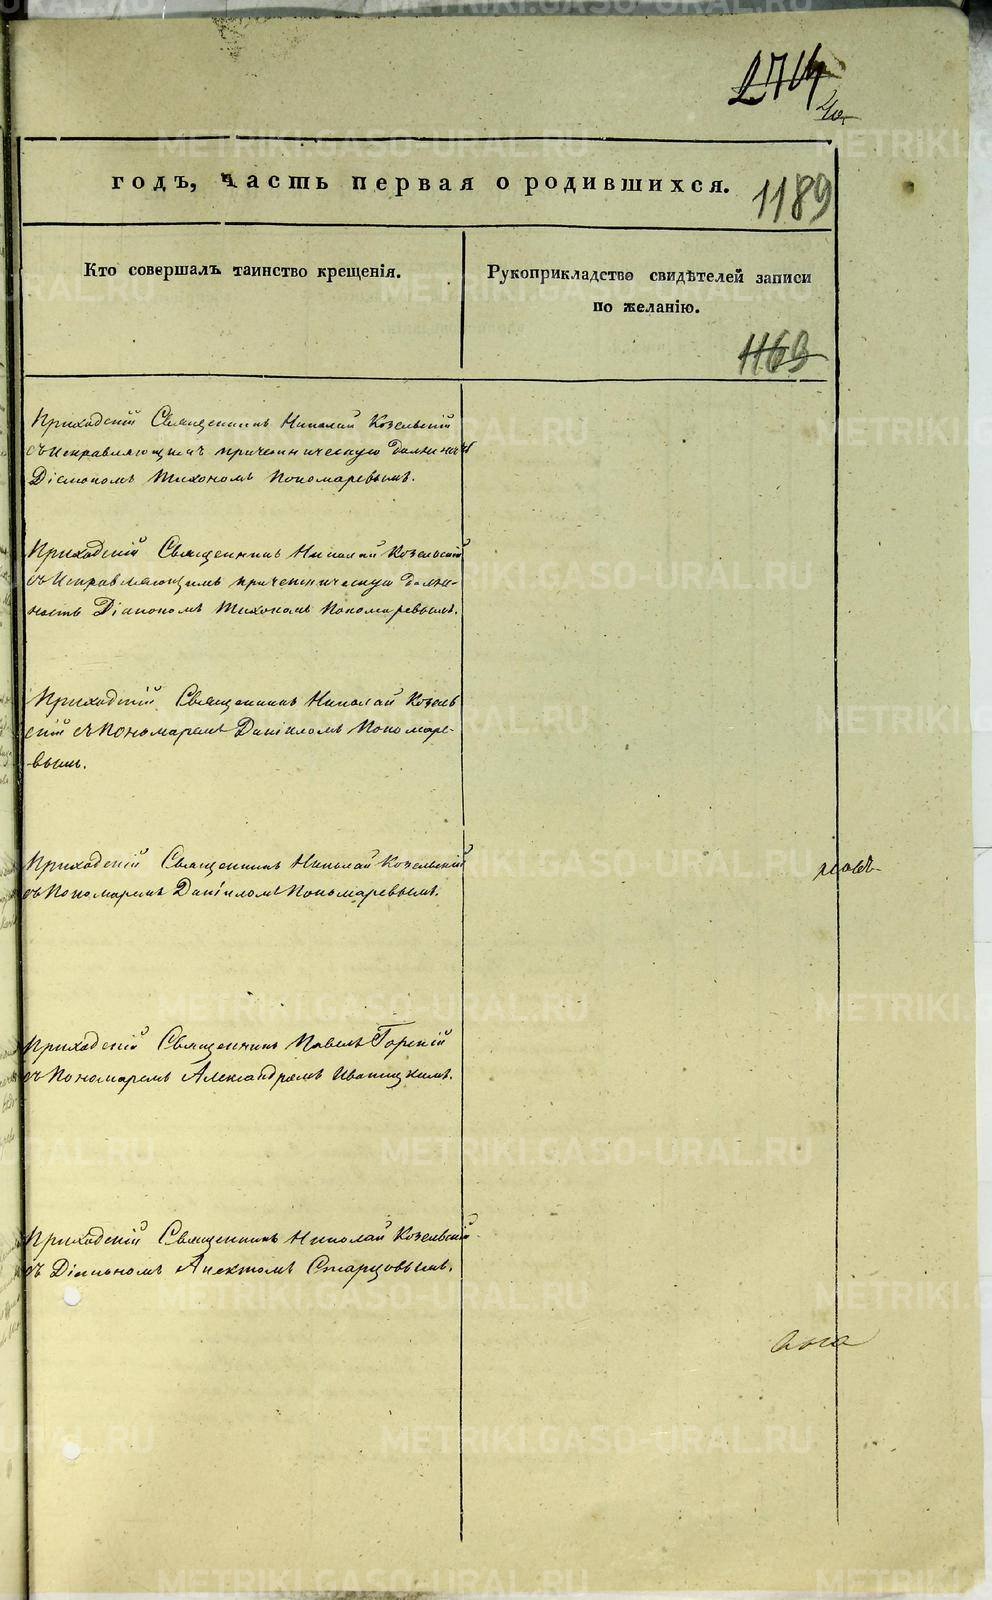 2714
годъ, часть первая о родившихся.
1189
Кто совершалъ таинство крещенія.
Рукоприкладство свидѣтелей записи
по желанію.
1163
Приходскій Священникъ Николай Козельскій
съ Исправляющимъ причетническую должность
Діакономъ Тихономъ Пономаревымъ.
Приходскій Священникъ Николай Козельскій
съ Исправляющимъ причетническую долж-
ность Діакономъ Тихономъ Пономаревымъ.
Приходскій Священникъ Николай Козель
скій съ Пономаремъ Даніиломъ Пономаре-
вымъ.
Приходскій Священникъ Николай Козельскій
съ Пономаремъ Даніиломъ Пономаревымъ.
Приходскій Священникъ Павелъ Горскій
съ Пономаремъ Александромъ Иваницкимъ.
Приходскій Священникъ Николай Козельскій
съ Діакономъ Анектомъ Старцовымъ.
METRIKI.GASO-URAL.RU